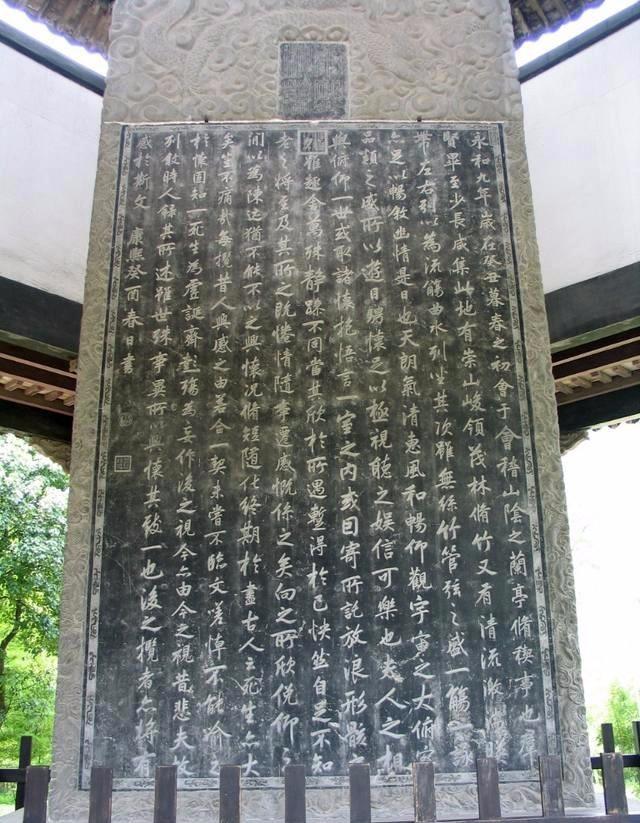 永和九年歲在癸丑暮春之初會于會稽山陰之蘭亭脩稧事也羣
賢畢至少長咸集此地有崇山峻領茂林脩竹又有清流激暎
帶左右引以為流觴曲水列坐其次雖無絲竹管弦之盛一觴一詠
亦足以暢敘幽情是日也天朗氣清惠風和暢仰觀宇宙之大俯察
品類之盛所以遊目騁懷足以極視聽之娛信可樂也夫人之相
與俯仰一世或取諸懷抱悟言一室之內或因寄所託放浪形骸之
雖趣舍萬殊靜躁不同當其欣於所遇蹔得於己怏然自足不知
老之將至及其所之既惓情隨事遷感慨係之矣向之所欣俛仰之
間以為陳迹猶不能不以之興懷況脩短隨化終期於盡古人云死生亦大
矣豈不痛哉每攬昔人興感之由若合一契未嘗不臨文嗟悼不能喻之
於懷固知一死生為虛誕齊彭殤為妄作後之視今亦由今之視昔悲夫故
列敘時人錄其所述雖世殊事異所以興懷其致一也後之攬者亦將有
感於斯文 康熙癸酉春日書